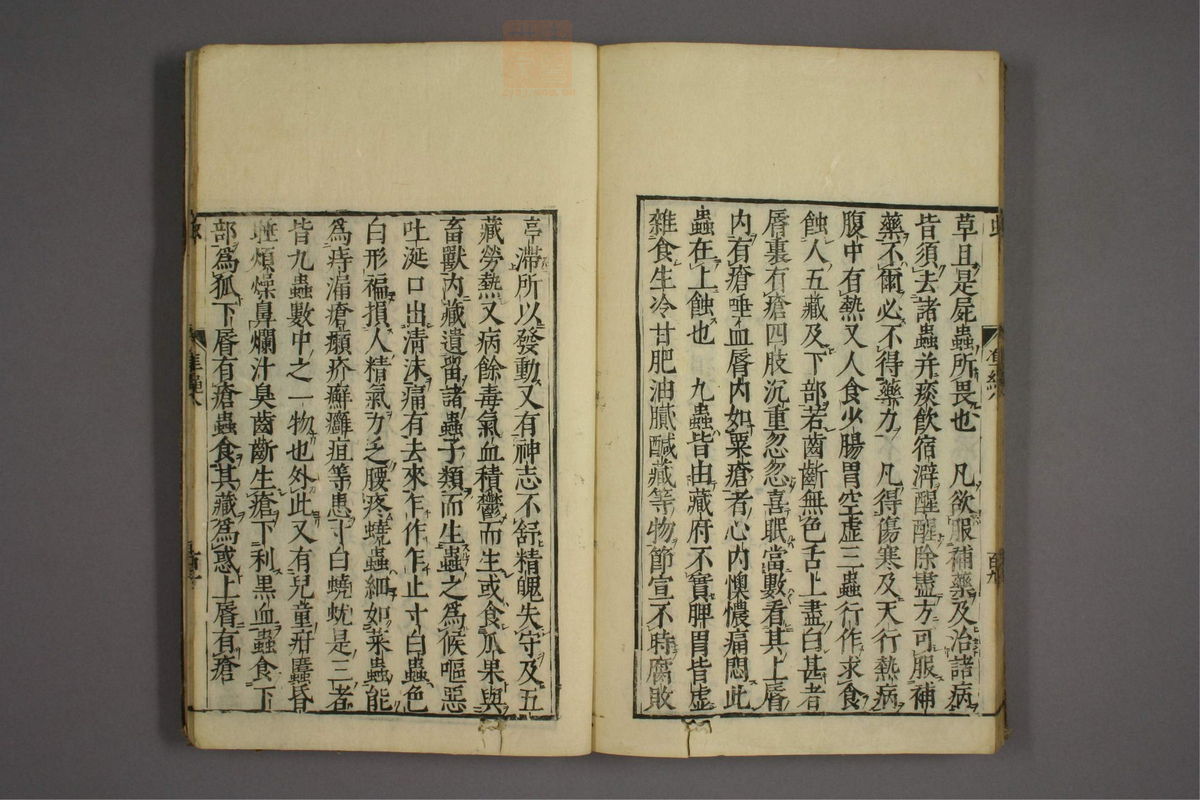 草且是屍蟲所畏也　凡欲服補藥及治諸病
皆須去諸蟲并痰飲宿澼醒醒除盡方可服補
藥不爾必不得藥力　凡得傷寒及天行熱病
腹中有熱又人食少腸胃空虛三蟲行作求食
蝕人五藏及下部若齒齗無色舌上盡白甚者
脣裏有瘡四肢沉重忽忽喜眠當數看其上脣
内有瘡唾血脣内如粟瘡者心内懊憹痛悶此
蟲在上蝕也　九蟲皆由藏府不實脾胃皆虛
雜食生冷甘肥油膩醎藏等物節宣不時腐敗
亭滯所以發動又有神志不舒精魄失守及五
藏勞熱又病餘毒氣血積鬱而生或食瓜果與
畜獸内藏遺留諸蟲子類而生蟲之爲候嘔惡
吐涎口出淸沫痛有去來乍作乍止寸白蟲色
白形褊損人精氣力乏腰疼蟯蟲細如菜蟲能
爲痔漏瘡癩疥癬癰疽等患寸白蟯蚘是三者
皆九蟲數中之一物也外此又有兒童疳䘌昏
睡煩燥鼻爛汁臭齒齗生瘡下利黑血蟲食下
部爲狐下脣有瘡蟲食其藏爲惑上脣有瘡